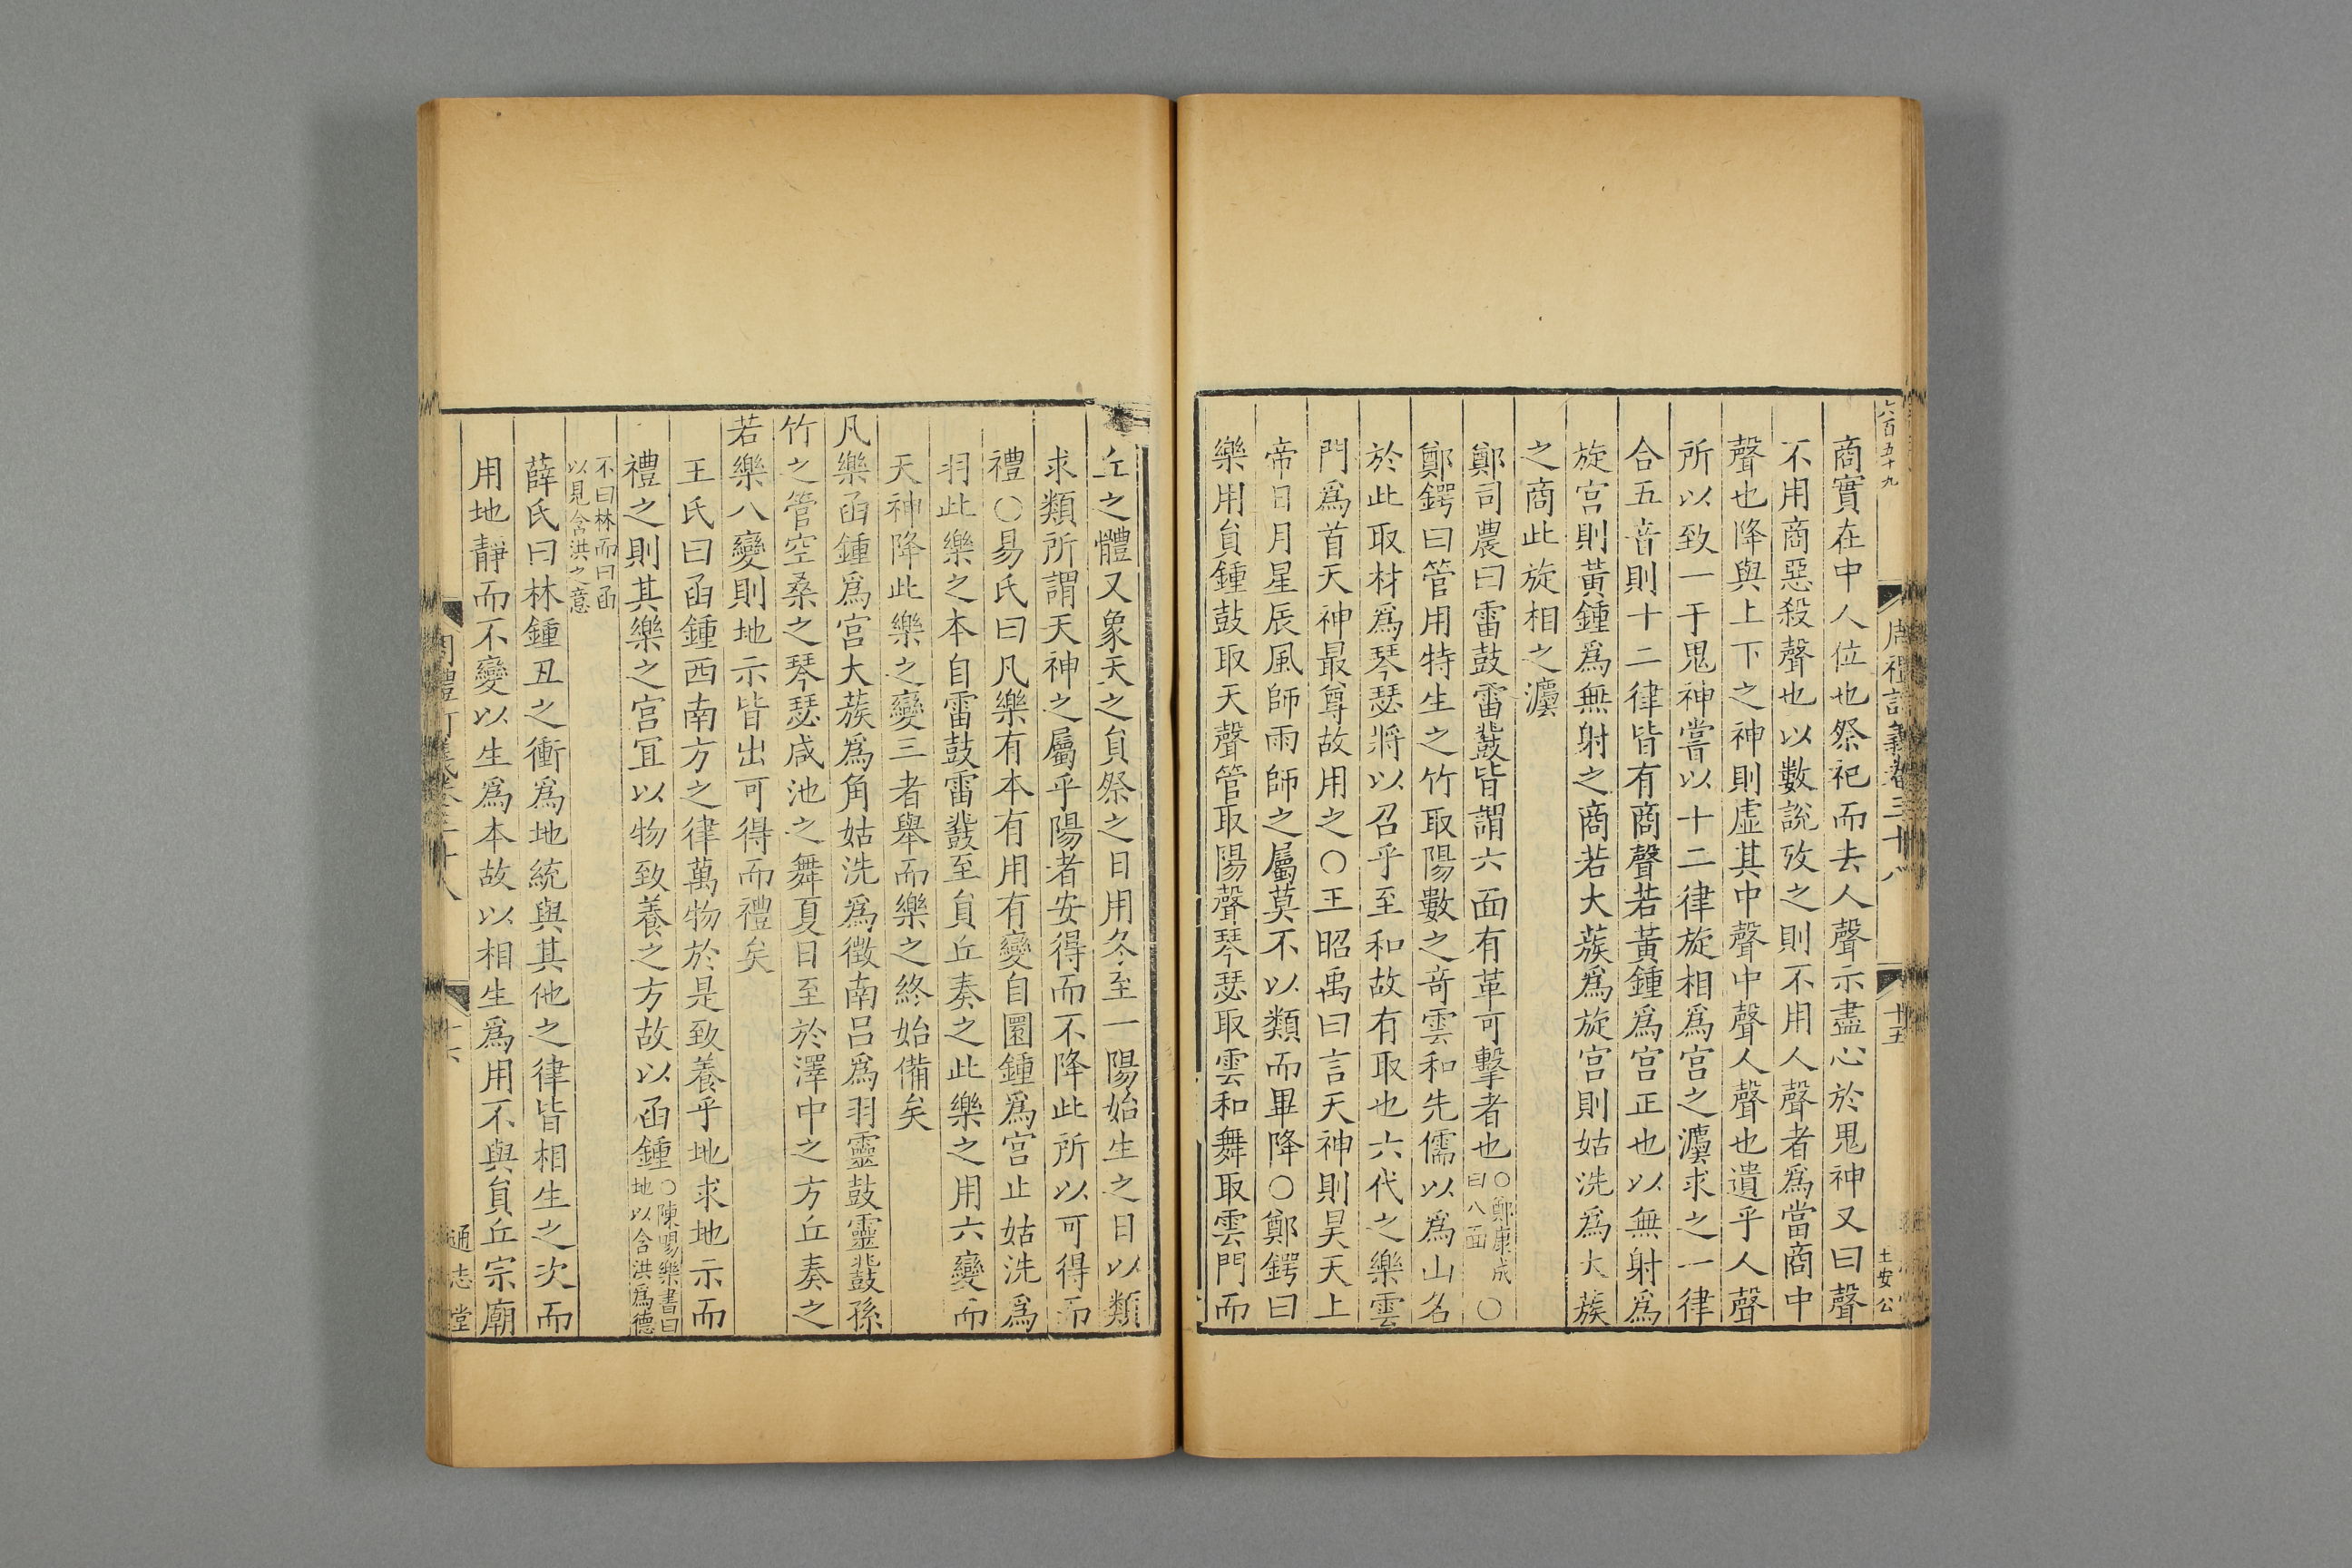 六百五十九
周禮訂義卷三十八
十五
土安公
商實在中人位也祭祀而去人聲示盡心於鬼神又曰聲
不用商惡殺聲也以數說攷之則不用人聲者爲當商中
聲也降與上下之神則虛其中聲中聲人聲也遺乎人聲
所以致一于鬼神嘗以十二律旋相爲宮之灋求之一律
合五音則十二律皆有商聲若黃鍾爲宮正也以無射爲
旋宮則黃鍾爲無射之商若大蔟爲旋宮則姑洗爲大蔟
之商此旋相之灋
鄭司農曰雷鼓雷鼗皆謂六面有革可擊者也○鄭康成曰八面○
鄭鍔曰管用特生之竹取陽數之奇雲和先儒以爲山名
於此取材爲琴瑟將以召乎至和故有取也六代之樂雲
門爲首天神最尊故用之○王昭禹曰言天神則昊天上
帝日月星辰風師雨師之屬莫不以類而畢降○鄭鍔曰
樂用貟鍾鼓取天聲管取陽聲琴瑟取雲和舞取雲門而
丘之體又象天之貟祭之日用冬至一陽始生之日以類
求類所謂天神之屬乎陽者安得而不降此所以可得而
禮○易氏曰凡樂有本有用有變自圜鍾爲宮止姑洗爲
羽此樂之本自雷鼓雷鼗至貟丘奏之此樂之用六變而
天神降此樂之變三者舉而樂之終始備矣
凡樂函鍾爲宮大蔟爲角姑洗爲徵南呂爲羽靈鼓靈鼗孫
竹之管空桑之琴瑟咸池之舞夏日至於澤中之方丘奏之
若樂八變則地示皆出可得而禮矣
王氏曰函鍾西南方之律萬物於是致養乎地求地示而
禮之則其樂之宮宜以物致養之方故以函鍾○陳暘樂書曰地以含洪爲德
不曰林而曰函以見含洪之意
薛氏曰林鍾丑之衝爲地統與其他之律皆相生之次而
用地靜而不變以生爲本故以相生爲用不與貟丘宗廟
周禮訂義卷三十八
十六
通志堂